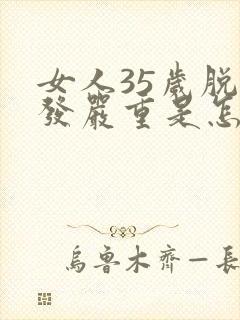 女人35歲脫
發嚴重是怎
烏魯木齊—長